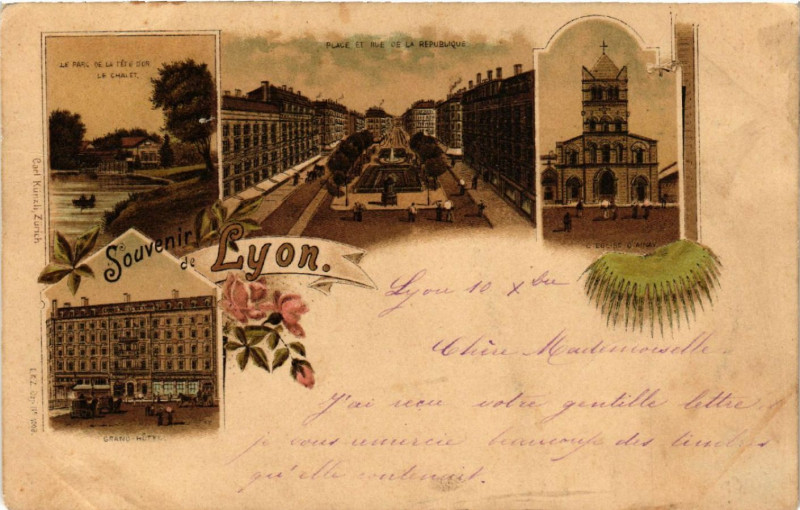 LE PARC DE LA TÊTE D'OR
LE CHALET.
PLACE ET RUE DE LA RÉPUBLIQUE
L'ÉGLISE D'AINAY
Carl Künzli, Zürich
Souvenir
de Lyon.
GRAND-HÔTEL
Lyon 10 Xbre
Chère Mademoiselle.
J'ai reçu votre gentille lettre,
je vous remercie beaucoup des timbres
qu'elle contenait.